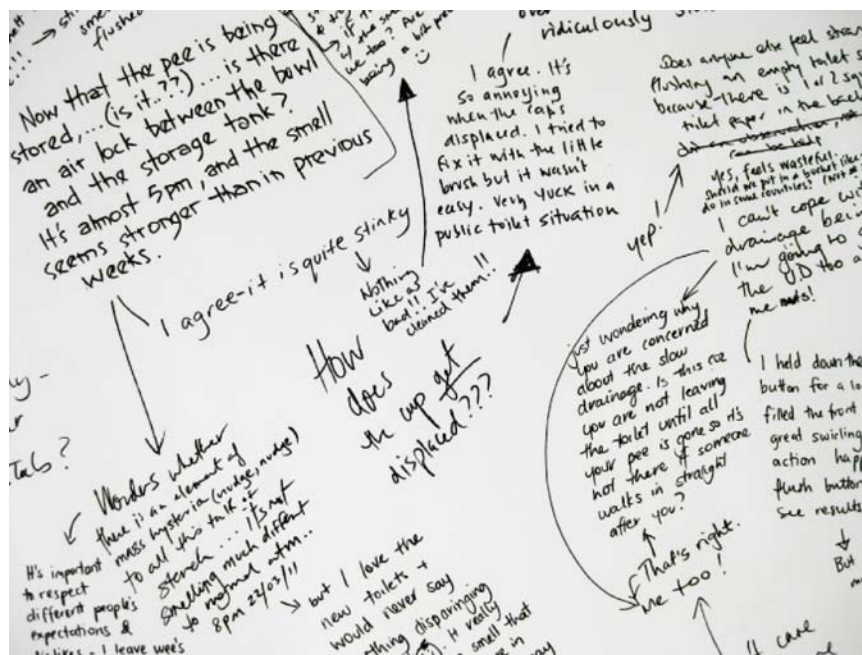 smell
flushed
Now that the pee is being
stored,...(is it..??)... is there
an air lock between the bowl
and the storage tank?
It's almost 5pm, and the smell
seems stronger than in previous
weeks.
I agree - it is quite stinky
we too? Are
being a bit
ridiculously
I agree. It's
so annoying
when the caps
displaced. I tried to
fix it with the little
brush but it wasn't
easy. Very YUCK in a
public toilet situation
Nothing
like as
bad!! I've
cleaned them..!!
How
does
the cup get
displaced???
Does anyone else feel
flushing an empty toilet
because there is 1 or 2
toilet paper in the
yes, feels wasteful.
should we put in a bucket like
do in some countries? (Not
yep!
I can't cope
drainage
I'm going to
the OD too
me
Just wondering why
you are concerned
about the slow
drainage. Is this coz
you are not leaving
the toilet until all
your pee is gone so it's
not there if someone
walks in straight
after you?
That's right.
me too!
I held down the
button for a
filled the front
great swirling
action
flush button
see results
But
Tab?
Wonders whether
there is an element of
mass hysteria (nudge, nudge)
to all this talk of
stench ... it's not
smelling much different
to normal atm..
8pm 22/03/11
It's important
to respect
different people's
expectations &
I leave wee's
but I love the
new toilets +
would never say
disparaging
really
smell that
in
care